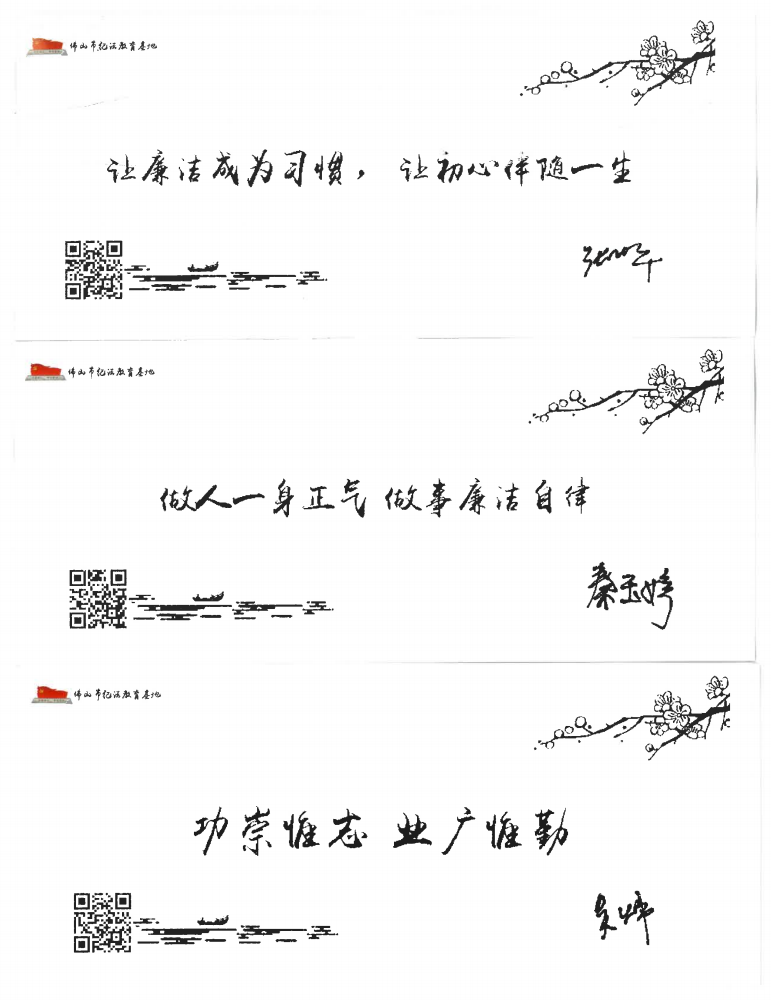 佛山市纪法教育基地
让廉洁成为习惯，让初心伴随一生
佛山市纪法教育基地
做人一身正气 做事廉洁自律
秦玉婷
佛山市纪法教育基地
功崇惟志 业广惟勤